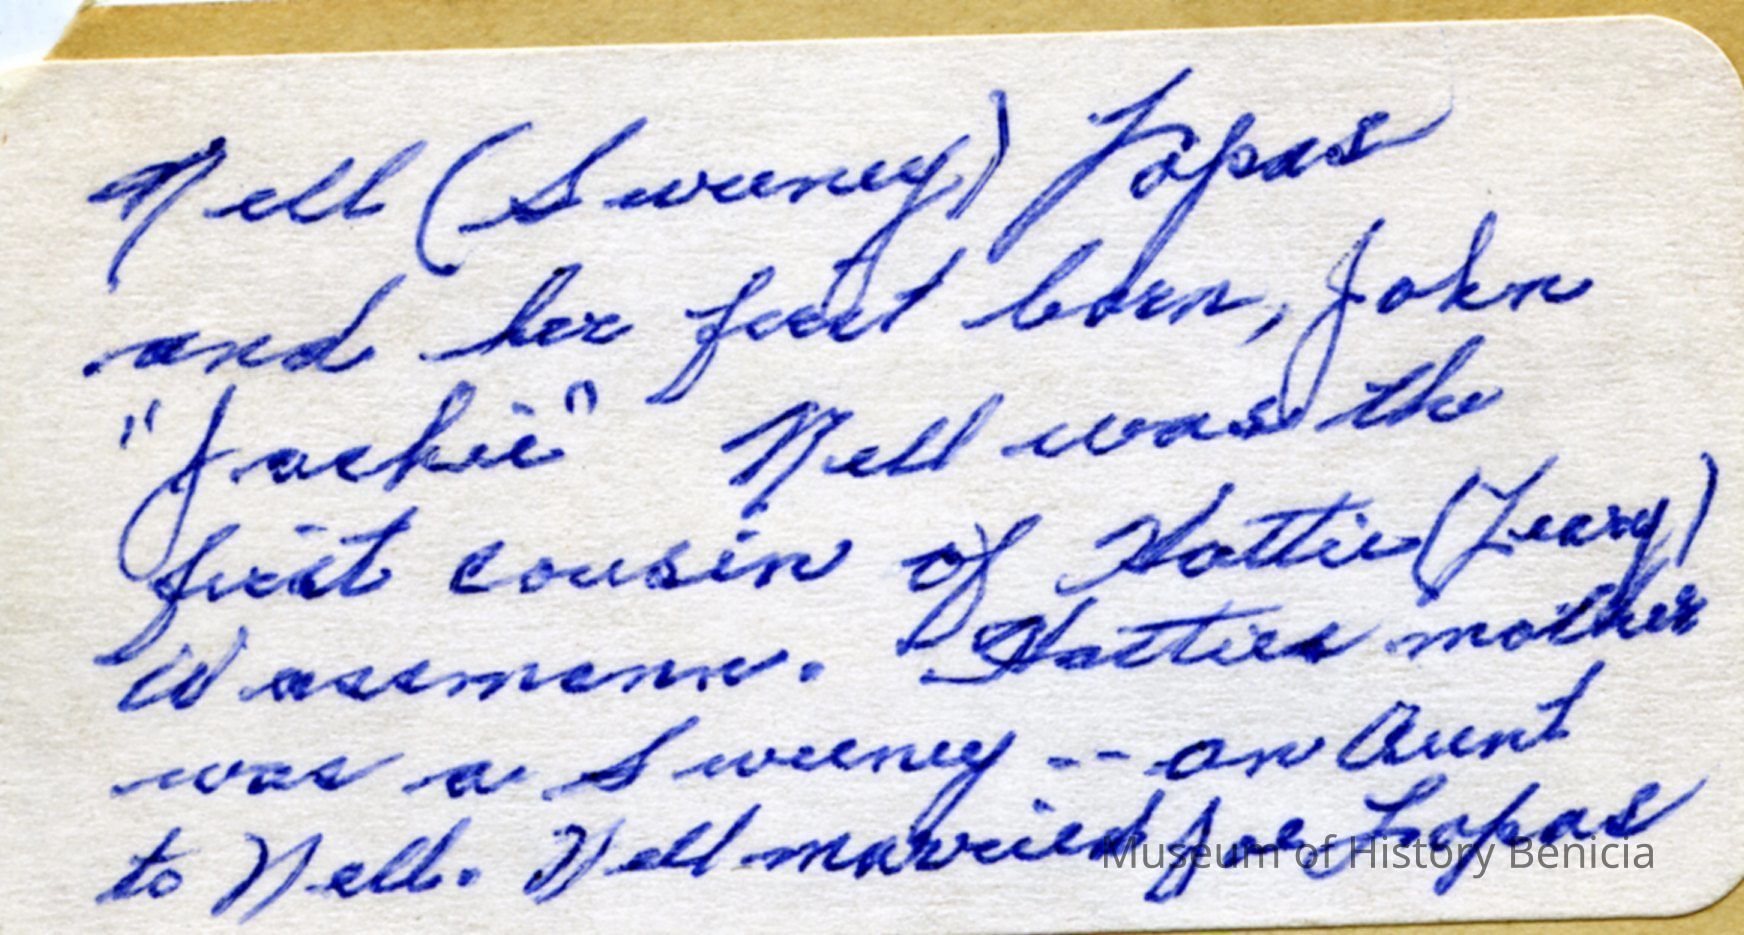 Nell (Sweeney) Lopas
and her first born, John
"Jackie" Nell was the
first cousin of Hattie (Leary)
Wassmann. Hatties mother
was a Sweeney -- an Aunt
to Nell. Nell married Joe Lopas
Museum of History Benicia